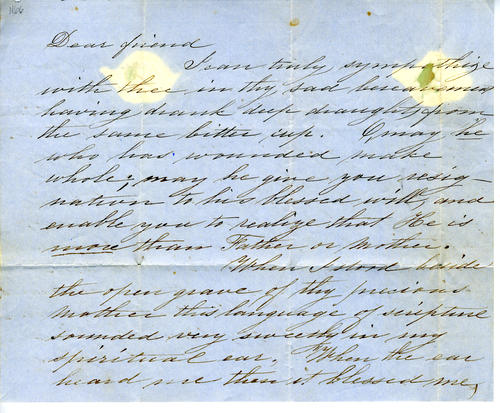 1866
Dear friend
I can truly sympathize
with thee in thy sad bereavement
having drank deep draughts from
the same bitter cup. O, may he
who has wounded make
whole; may he give you resig-
nation to his blessed will, and
enable you to realize that He is
more than Father or Mother.
When I stood beside
the open grave of thy precious
Mother this language of scripture
sounded very sweetly in my
spiritual ear. "When the ear
heard me then it blessed me,